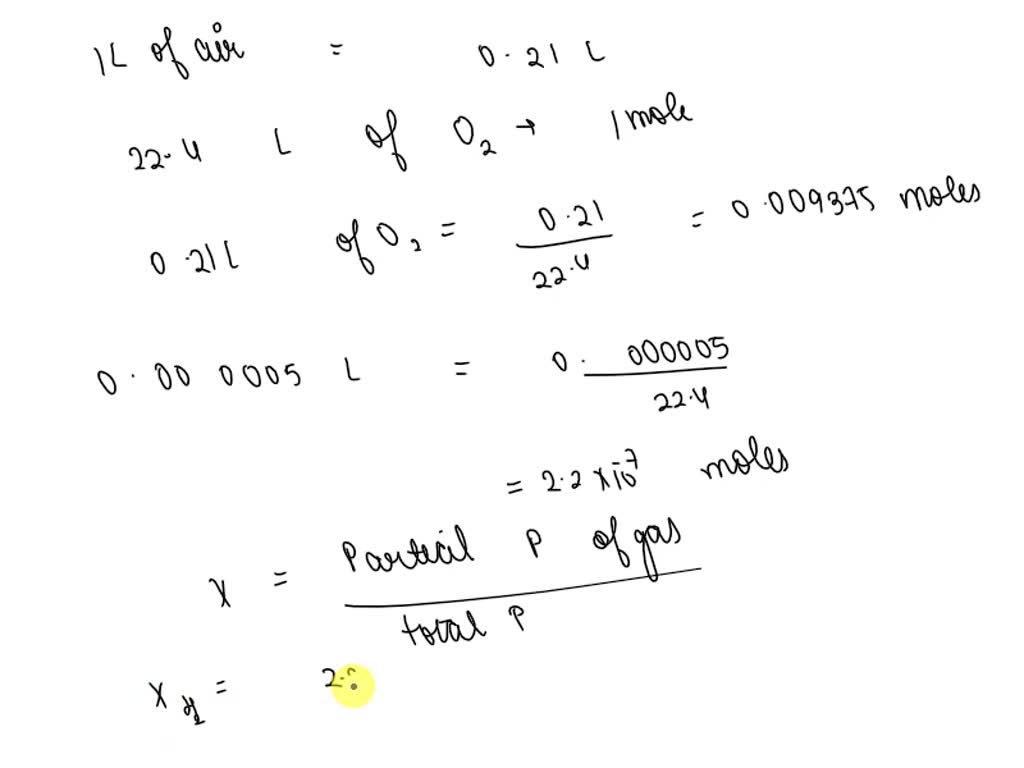 1L of air = 0.21 L
22.4 L of O2 → 1 mole
0.21L of O2 = 0.21 / 22.4 = 0.009375 moles
0.00 0005 L = 0.000005 / 22.4
= 2.2 x 10^-7 moles
x = Partial P of gas / total P
x =